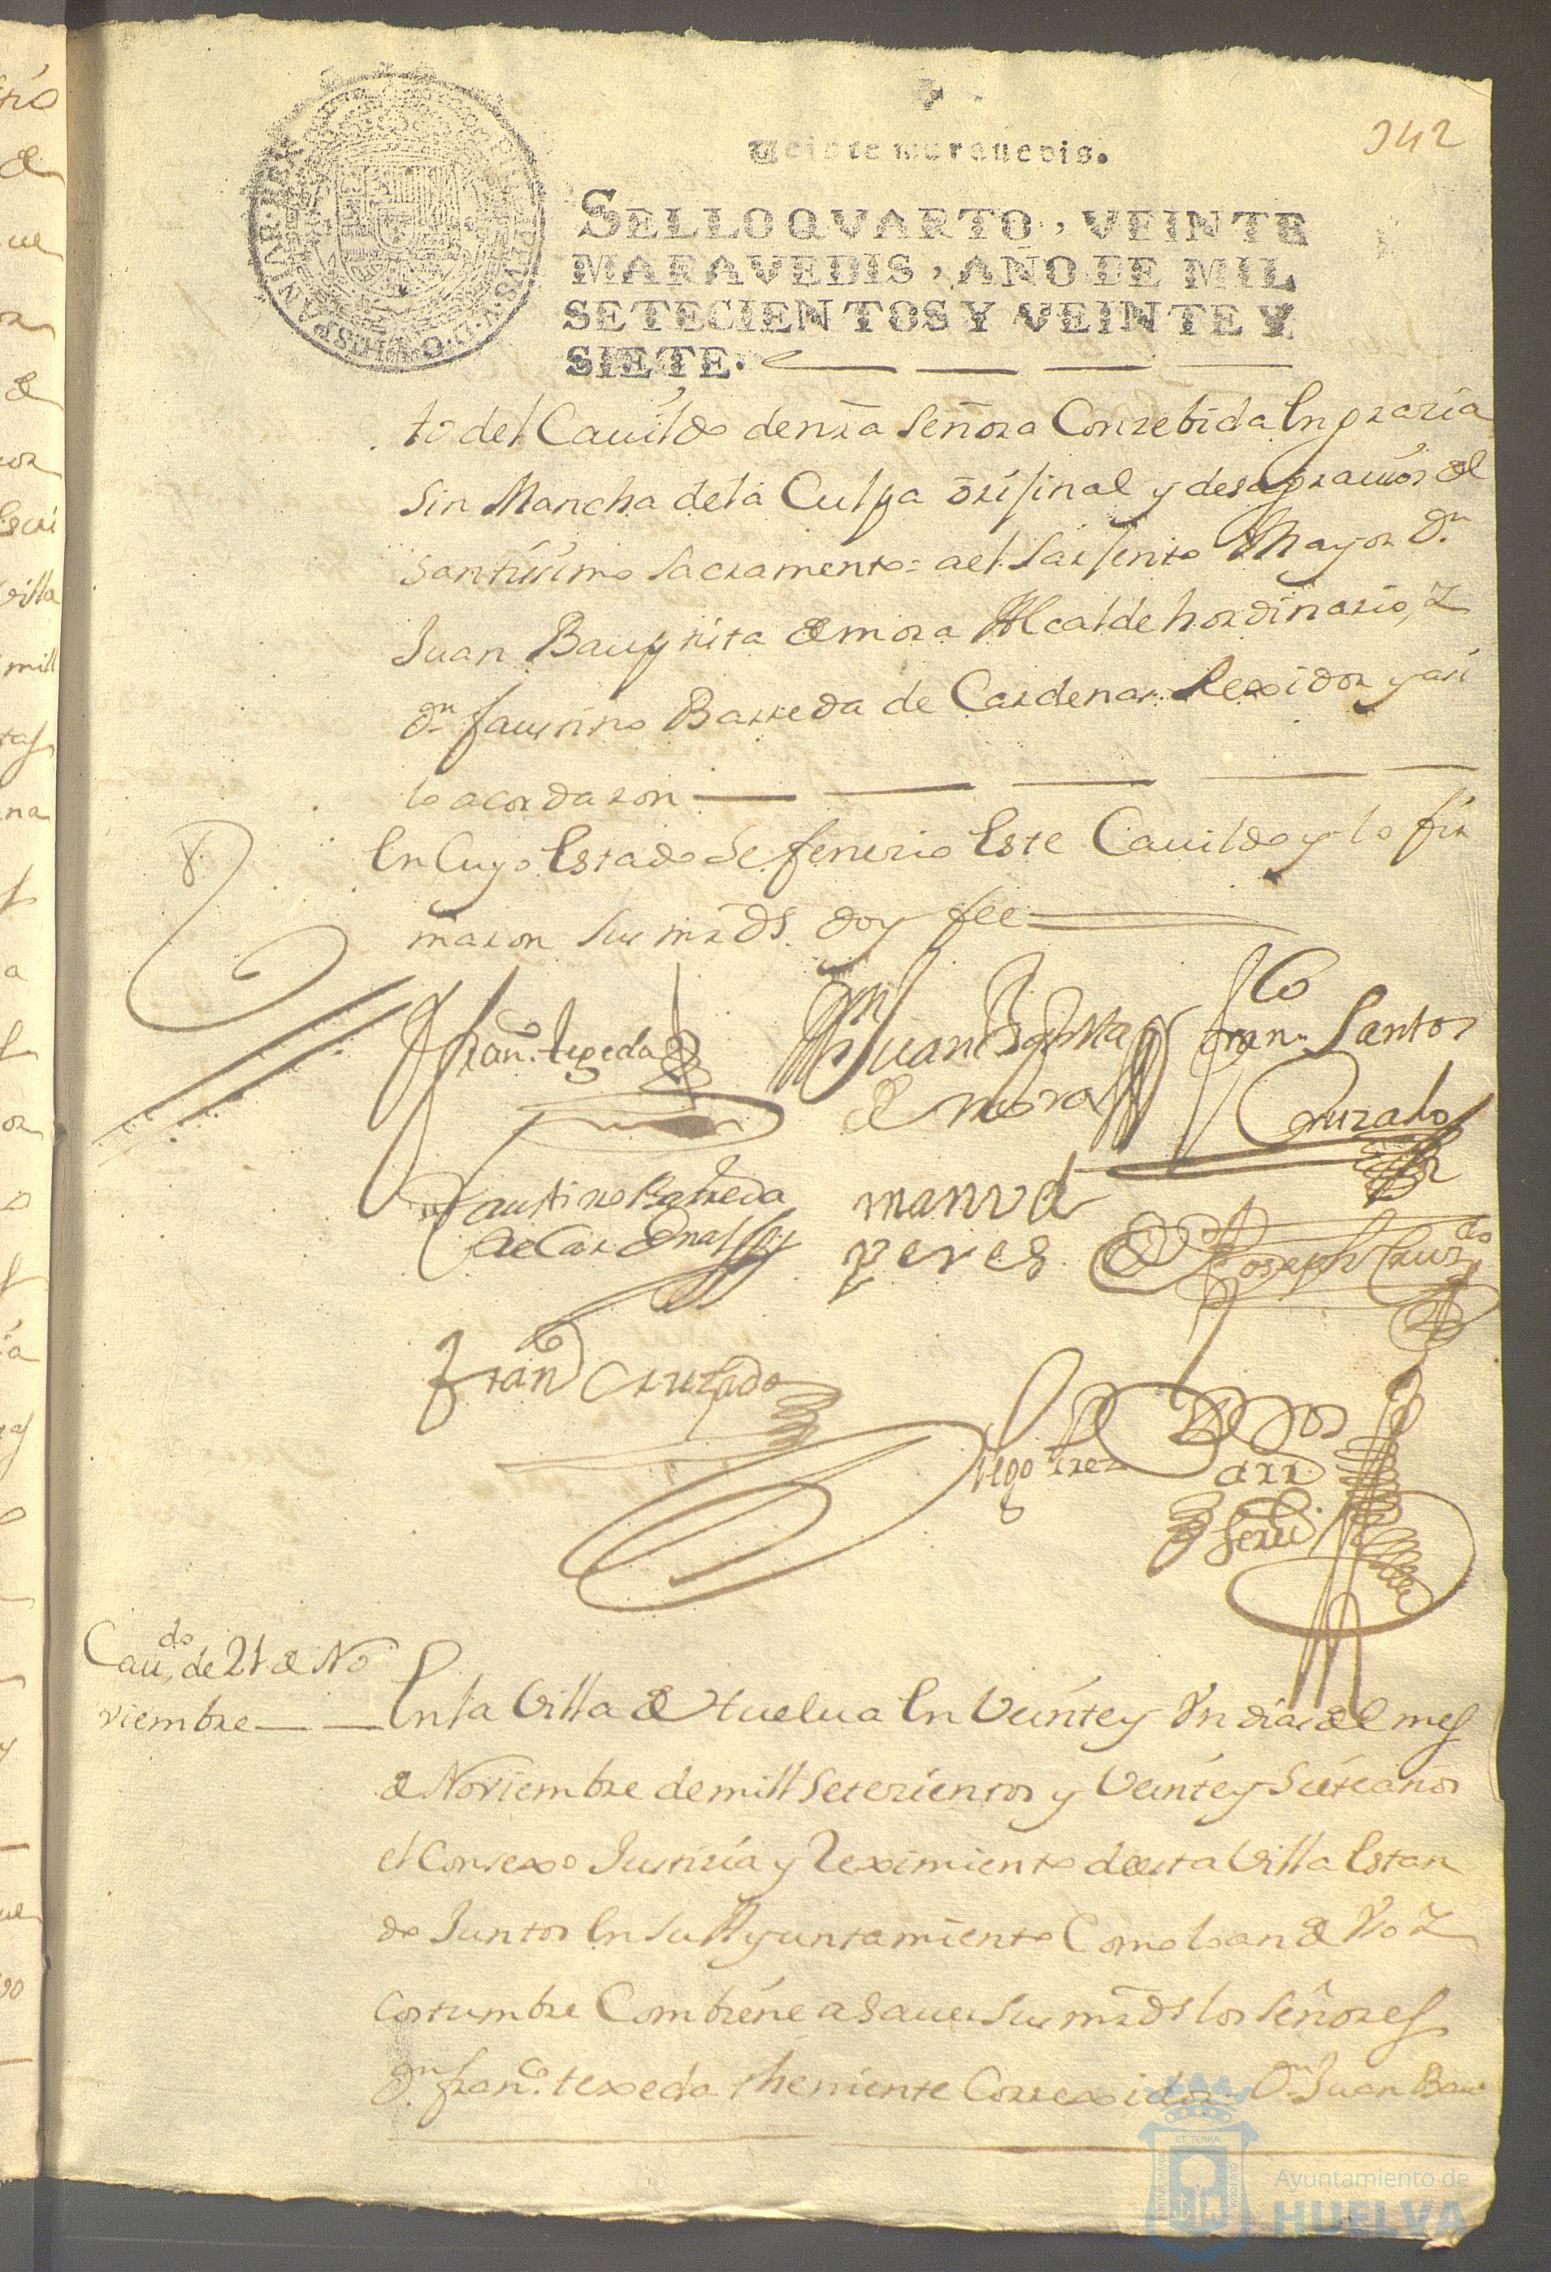 342
Veinte marauedis.
SELLO QVARTO, VEINTE
MARAVEDIS, AÑO DE MIL
SETECIENTOS Y VEINTE Y
SIETE.
to del Cauildo de nrã Señora Conzebida En grazia
Sin Mancha de la Culpa orijinal y desagrauios del
Santissimo Sacramento = a el Sarjento Mayor Dn.
Juan Bauptista de mora Alcalde hordinario, y
Dn. faustino Barreda de Cardenas Rexidor y asi
lo acordaron
En Cuyo Estado Se fenezio Este Cauildo y lo fir
maron Sus mrds. doy fee
Franco. texeda
Dn Juan Baptista
de mora
Franco Santos
Cruzado
Faustino Barreda
de Cardenas
manuel
peres
Joseph Cruzdo
Franco Cruzado
Diego Perez
Caudo. de 21 de No
viembre
En la Villa de Huelua En Veinte y Un dias del mes
de Noviembre de mill Setezientos y Veinte y Siete años
el Consexo Justizia y Reximiento de esta Villa Estan
do Juntos En Su Ayuntamiento Como lo an de Vso y
Costumbre Combiene a Sauer Sus mrds los Señores
Dn. franco. texeda theniente Correxidor. Dn. Juan Bau
ET TERRÆ
Ayuntamiento de
HUELVA